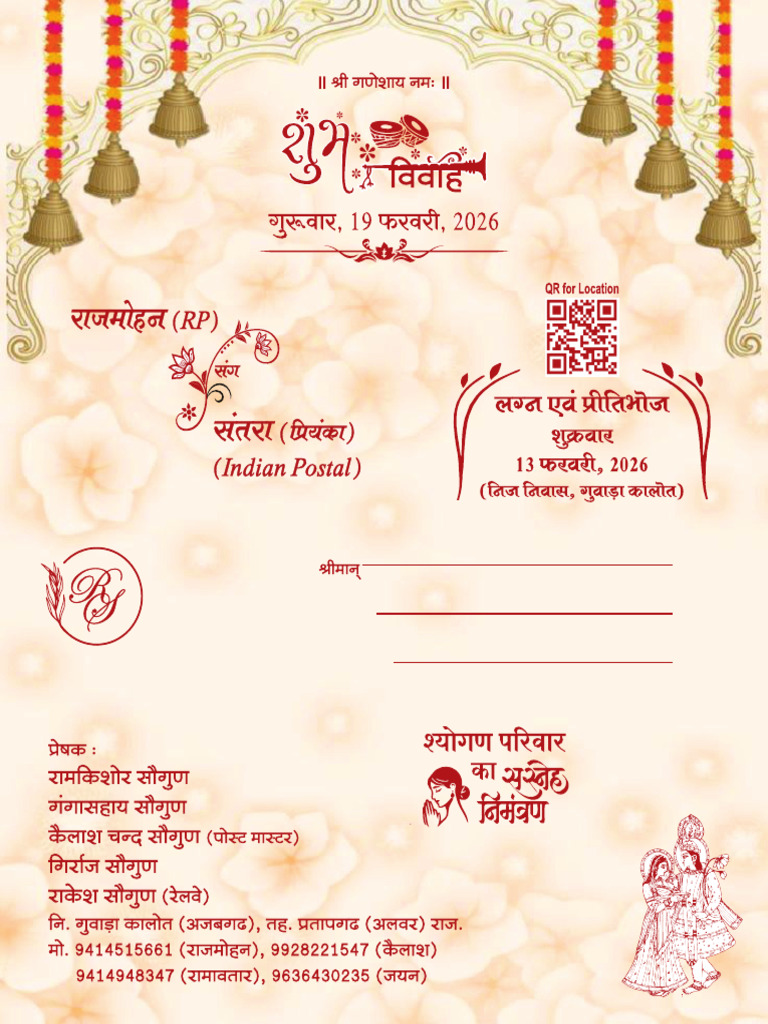 ॥ श्री गणेशाय नमः ॥
शुभ
विवाह
गुरूवार, 19 फरवरी, 2026
राजमोहन (RP)
संग
संतरा (प्रियंका)
(Indian Postal)
QR for Location
लग्न एवं प्रीतिभोज
शुक्रवार
13 फरवरी, 2026
(निज निवास, गुवाड़ा कालोत)
RS
श्रीमान्
प्रेषक :
रामकिशोर सौगुण
गंगासहाय सौगुण
कैलाश चन्द सौगुण (पोस्ट मास्टर)
गिर्राज सौगुण
राकेश सौगुण (रेलवे)
नि. गुवाड़ा कालोत (अजबगढ), तह. प्रतापगढ (अलवर) राज.
मो. 9414515661 (राजमोहन), 9928221547 (कैलाश)
9414948347 (रामावतार), 9636430235 (जयन)
श्योगण परिवार
का सस्नेह
निमंत्रण